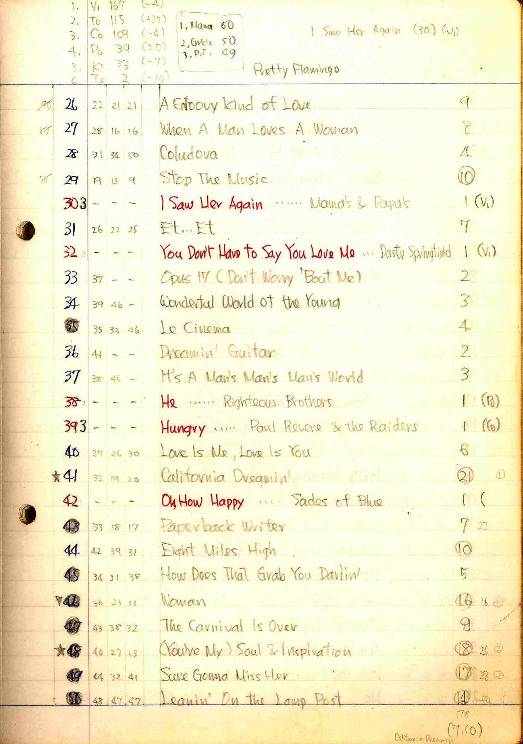 1. Vi 167 (-4)
2. To 115
3. Co 109 (-4)
4. Po 39 (20)
5. 33 (-7)
6 2
1, Mama 60
2, 50
3, P.F. 49
I Saw Her Again (30) (Vi)
Pretty Flamingo
26 22 21 21 A Groovy Kind of Love 9
27 28 16 16 When A Man Loves A Woman 8
28 Coludova 4
29 19 13 9 Stop The Music 10
303 - - - I Saw Her Again ...... Mama's & Papa's 1 (Vi)
31 26 22 25 Et...Et 7
32 - - - You Don't Have to Say You Love Me ... Dasty Springfield 1 (Vi)
33 37 - - Opus 17 (Don't Worry 'Bout Me) 2
34 39 46 - Wonderful World of the Young 3
35 35 33 46 Le Cinema 4
36 44 - - Dreamin' Guitar 2
37 38 45 - It's A Man's Man's Man's World 3
38 - - - He ...... Righteous Brothers 1
393 - - - Hungry ..... Paul Revere & the Raiders 1 (Co)
40 29 26 30 Love Is Me, Love Is You 6
★41 32 19 20 California Dreamin' 21
42 - - - Oh How Happy .... Sades of Blue 1 (
43 33 18 17 Paperback Writer 7 22
44 42 39 31 Eight Miles High 10
45 34 31 38 How Does That Grab You Darlin' 5
36 23 11 Woman 16 16
43 38 32 The Carnival Is Over 9
★48 40 27 13 (You're My) Soul & Inspiration 18
49 44 32 41 Sure Gonna Miss Her 17
50 48 47 47 Leanin' On the Lamp Post 14